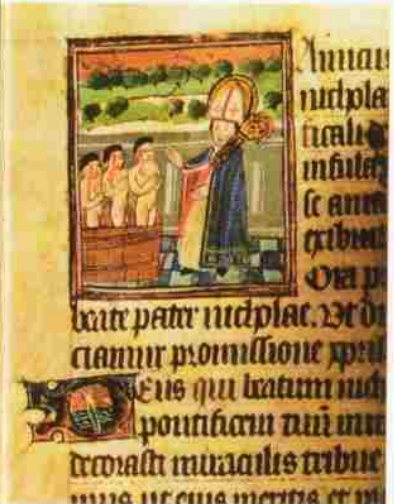 Amicus
nichola
ficali
infulas
se am
exhibuit
Ora p
beate pater nicholae. Ut di
ciamur promissione xpi
Deus qui beatum nich
pontificem tuum in
decorasti miraculis tribue